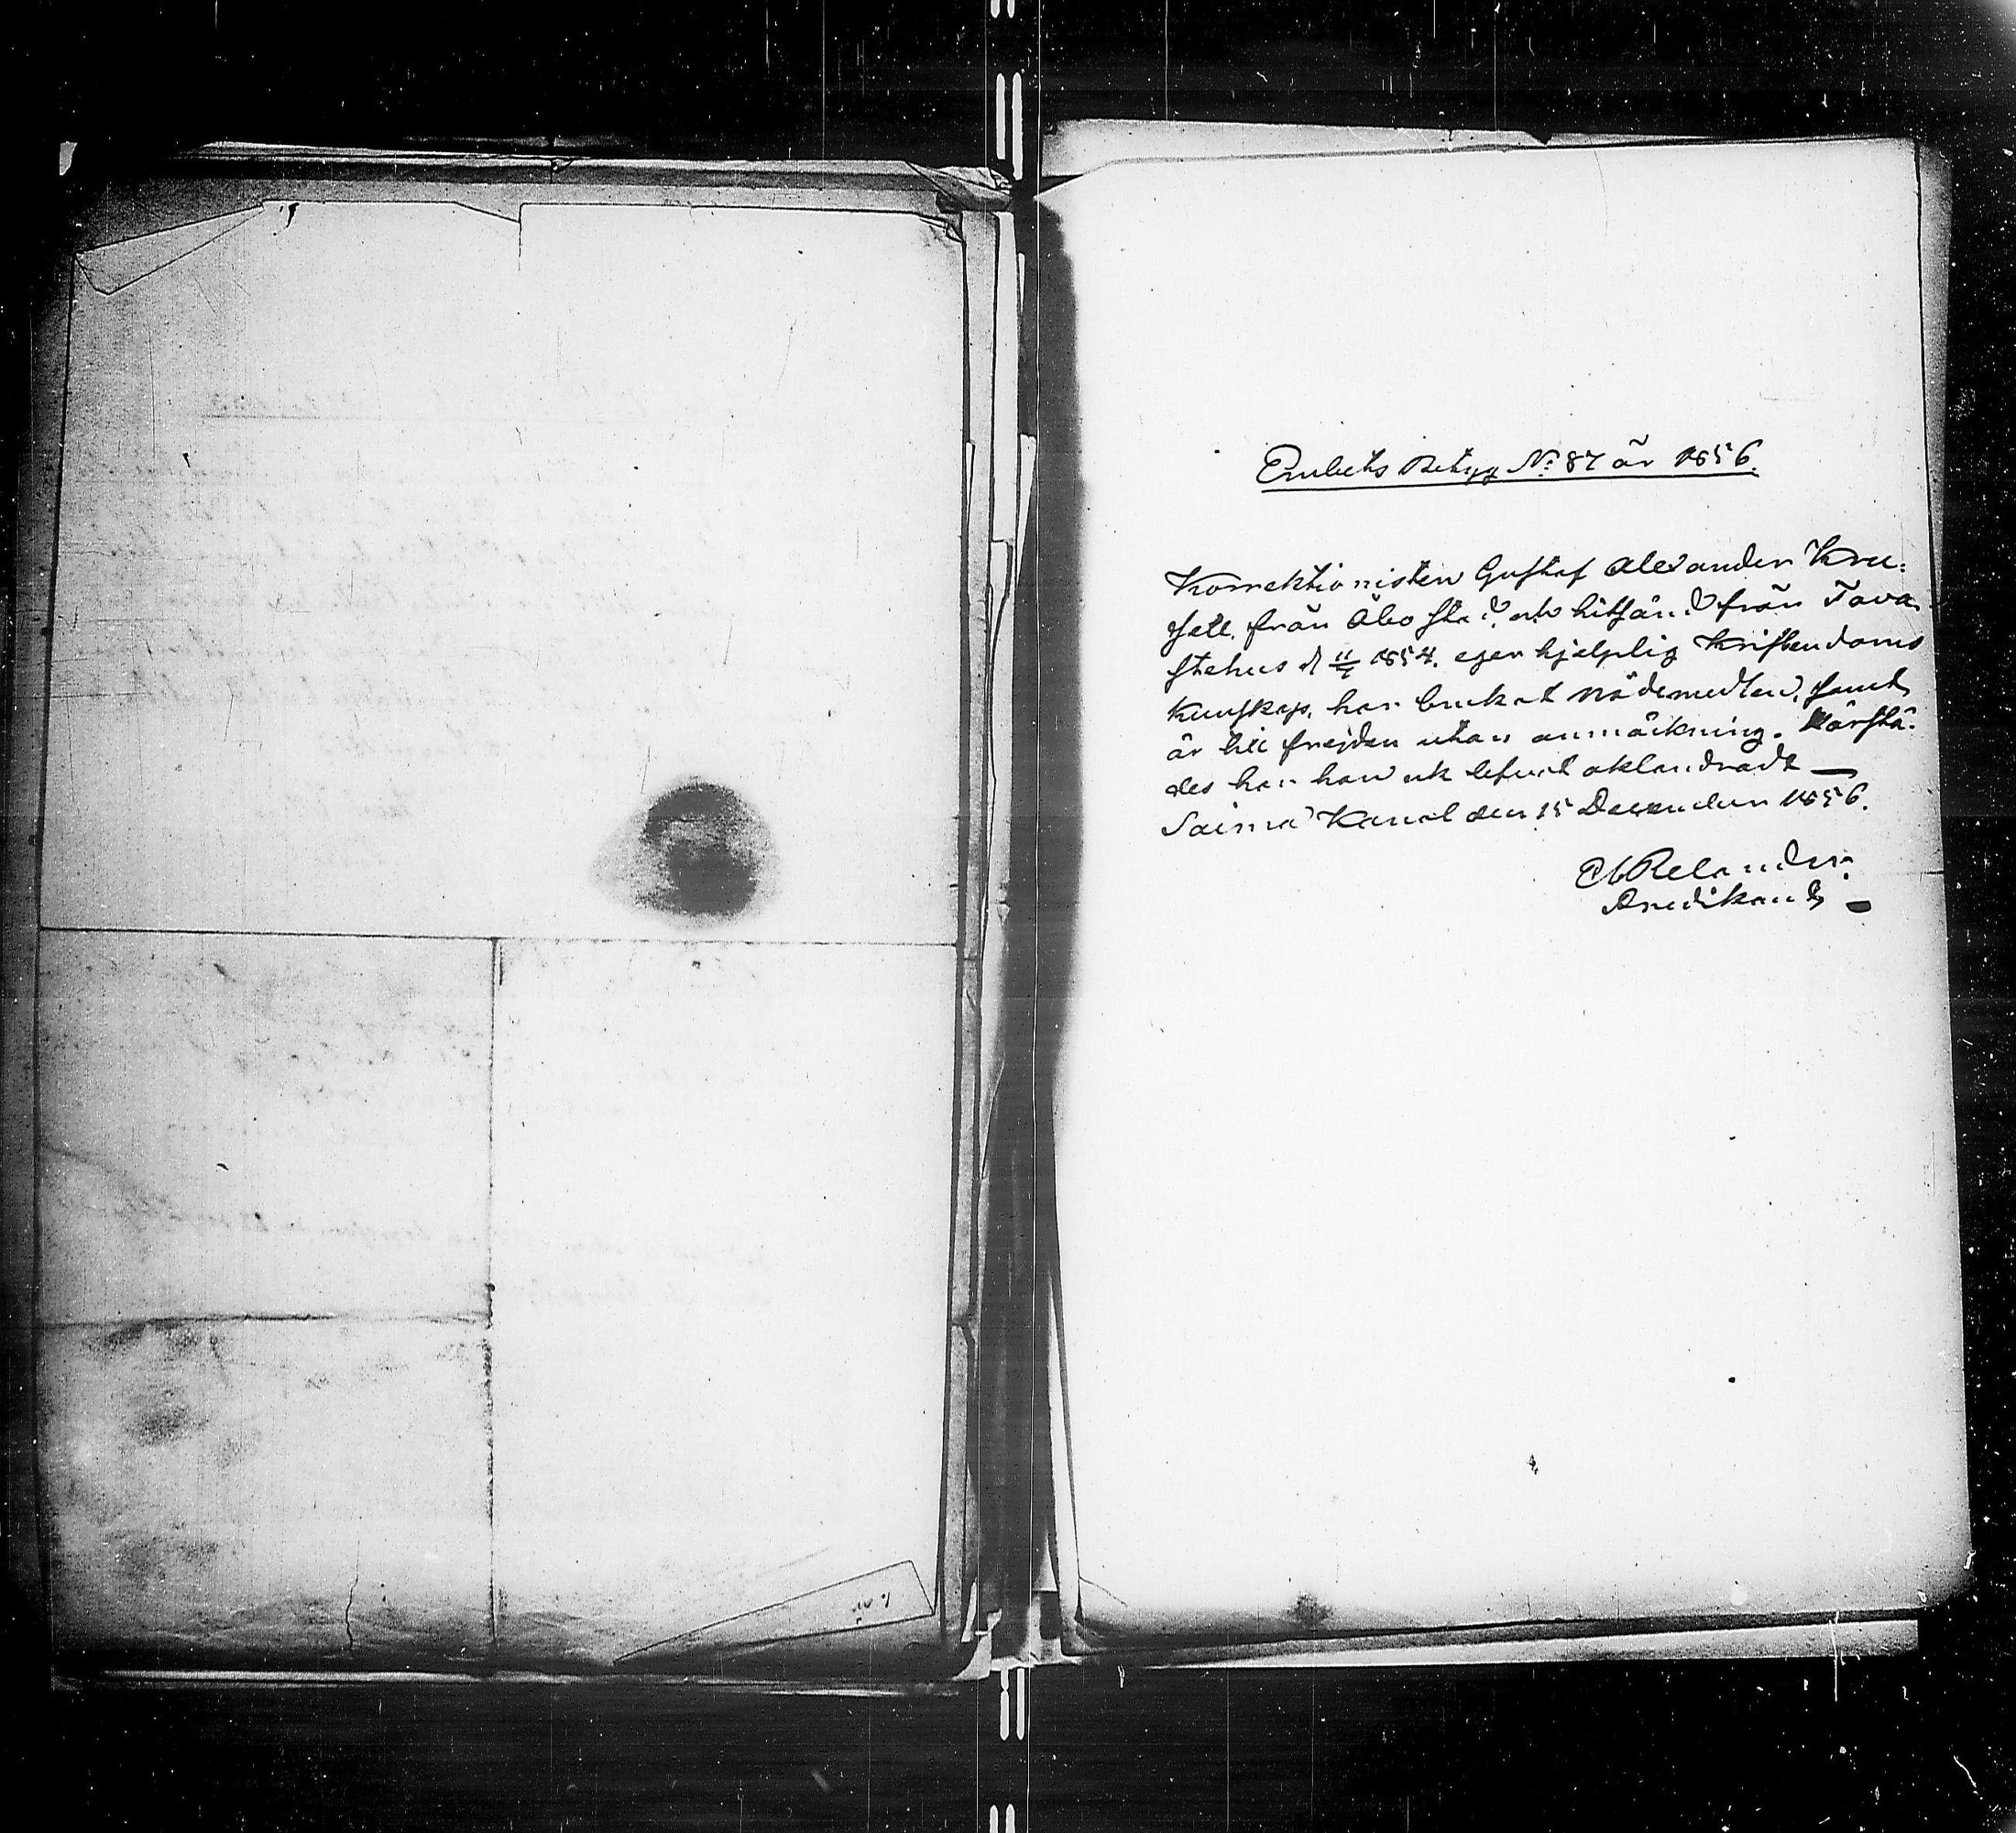 Embets Betyg No 87 år 1856.
Korrektionisten Gustaf Alexander Kru-
sell, från Åbo stad, och hitsänd från Tava-
stehus d 11/7 1854. eger hjelplig Kristendoms
kunskap, har brukat nådemedlen, samt
är till frejden utan anmärkning. Härstä-
des har han ock lefvat oklandradt —
Saima Kanal den 15 December 1856.
Relander.
Predikant